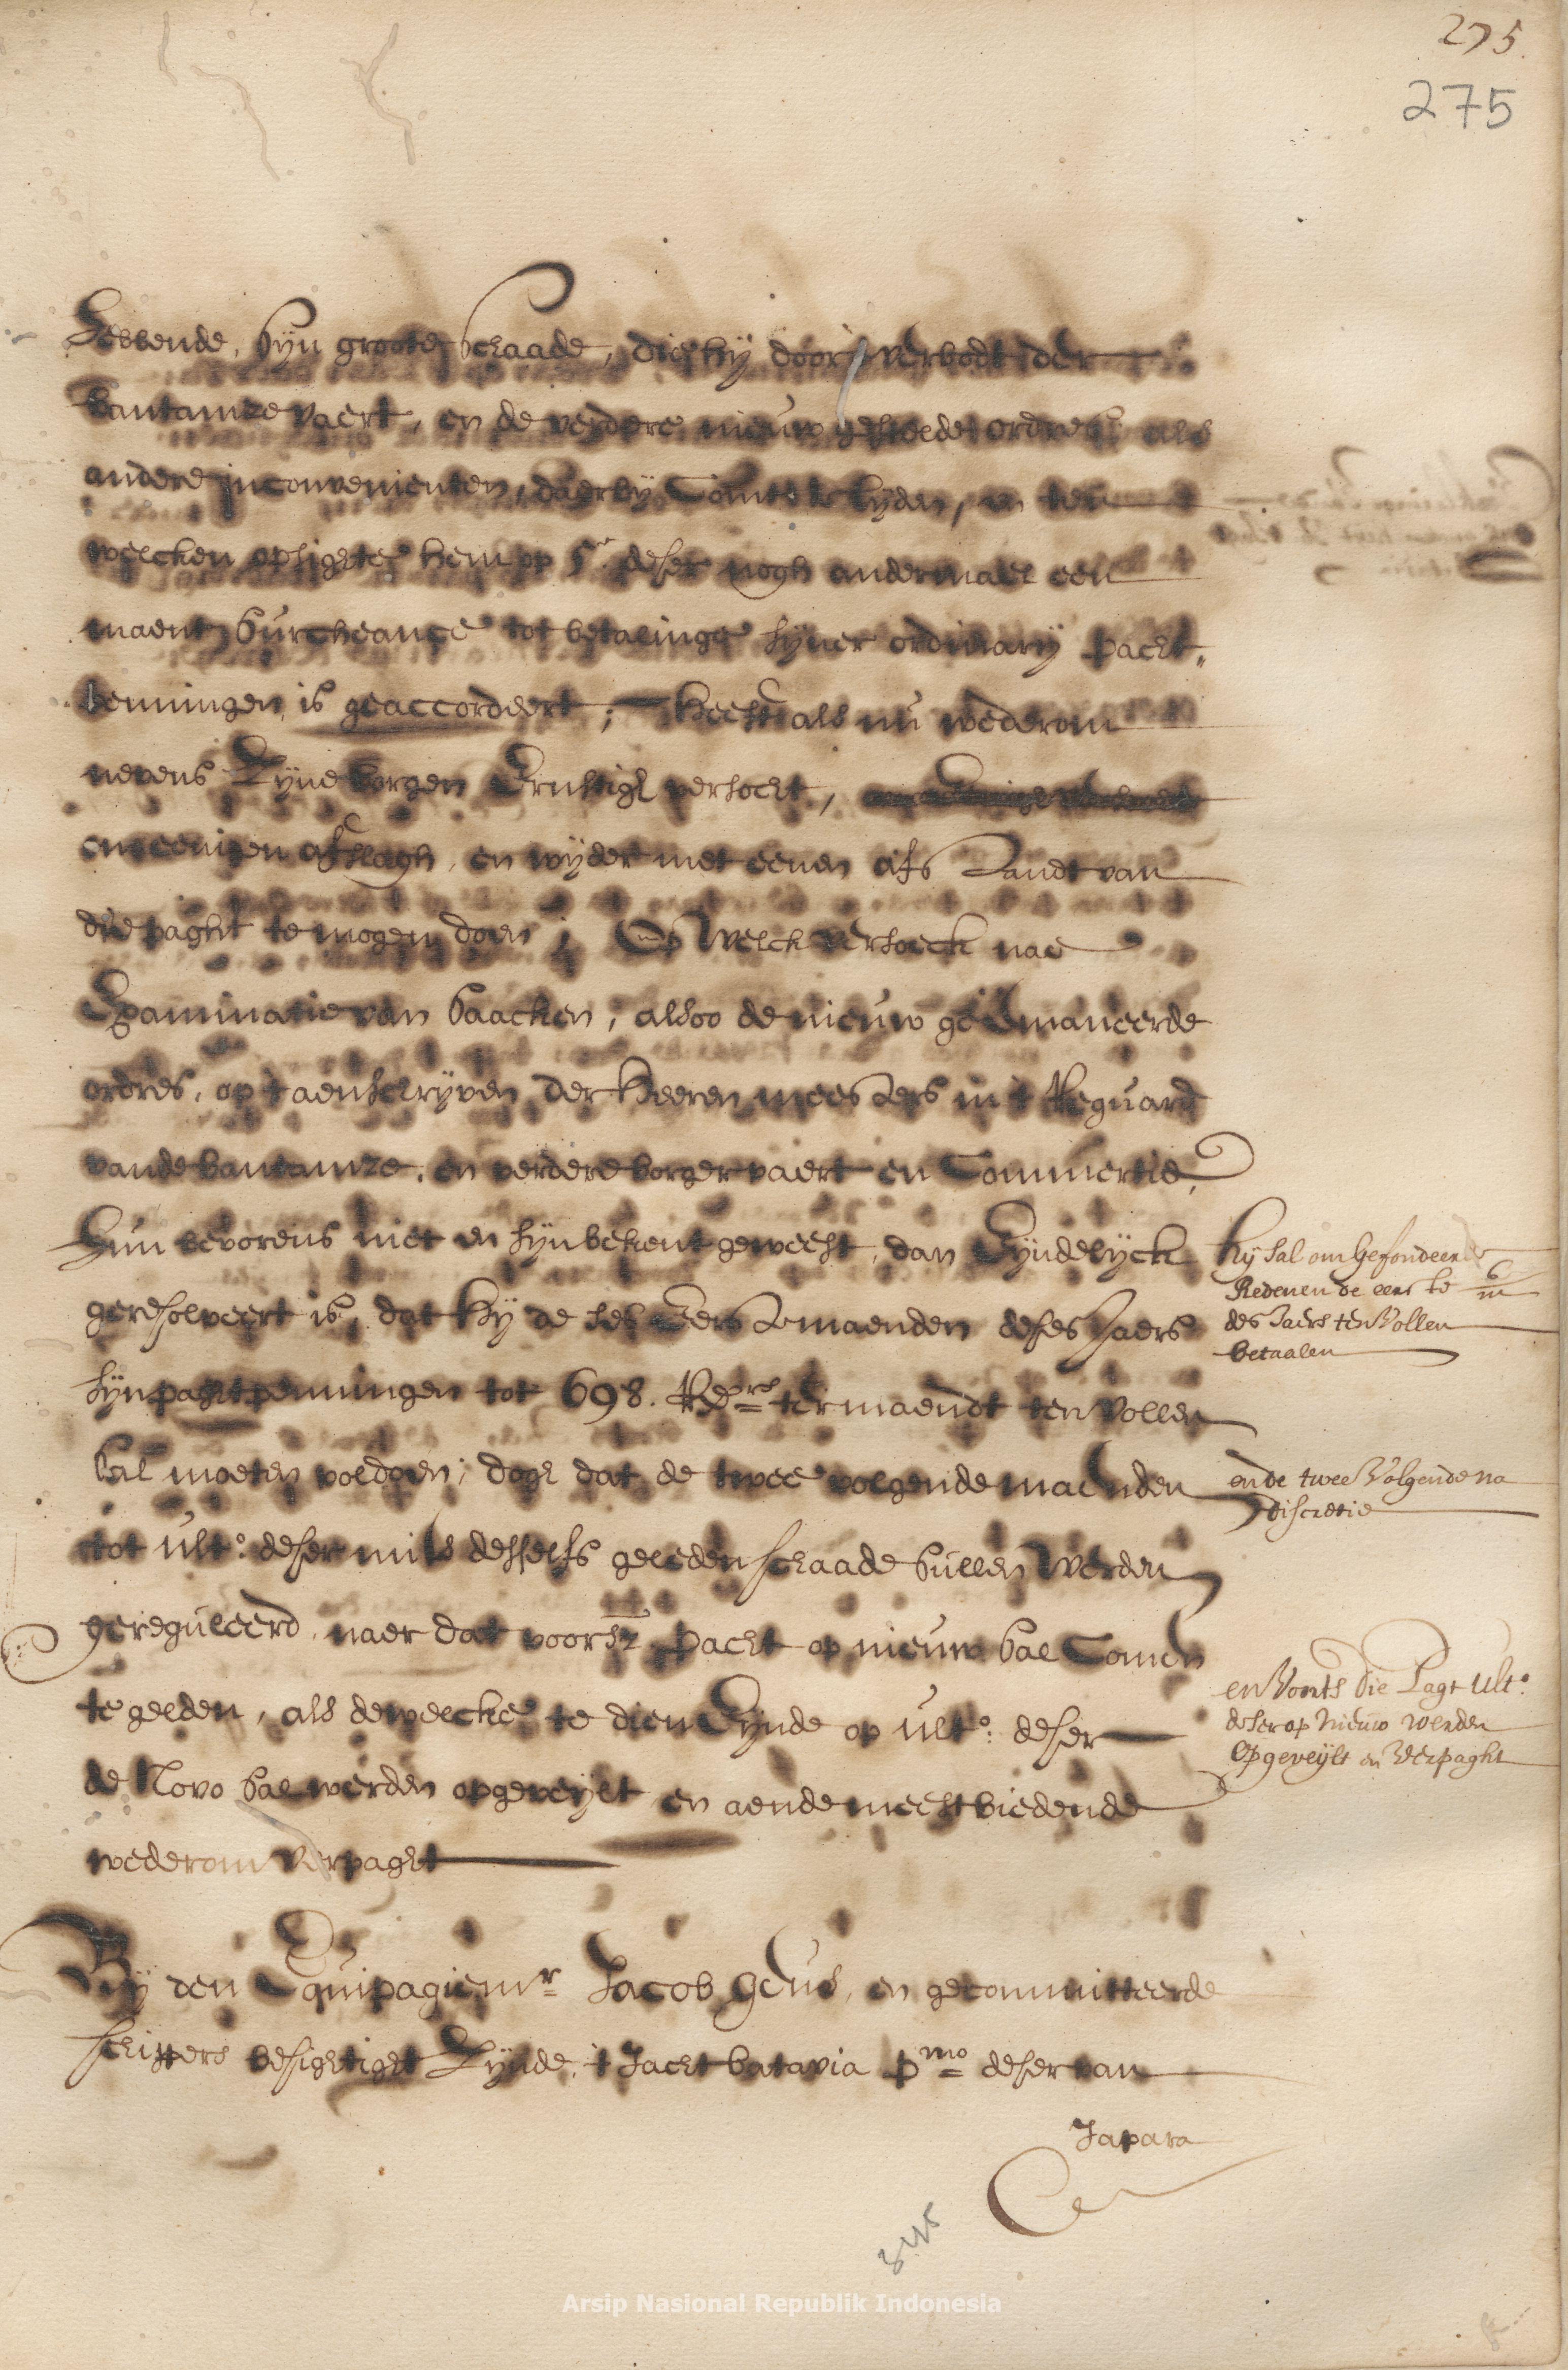 275.
275
hebbende, sijn groote schaade, die hij door 't verbodt der
bantamze vaert, en de verdere nieuw gestelde ordres als
andere inconvenienten, daerbij Comt te lijden, en ten
welcken opsighte hem op 5e deser nogh andermael een
maent surcheance tot betalinge sijner ordinarij pacht„
penningen, is geaccordeert; heeft als nu wederom
nevens Zijne borgen Ernstigh versocht,
om eenigen afslagh, en wijders met eenen afs Landt van
die paght te mogen doen; Op Welck versoeck nae
Examinatie van saacken, alsoo de nieuw geëmaneerde
ordres, op 't aenschrijven der Heeren meesters in 't Reguard
vande bantamze, en verdere borger vaert en Commertie,
hun bevorens niet en sijn bekent geweest, dan Eyndelijck
geresolveert is, dat hij de ses Eerste maenden deses Jaers
sijn paghtpenningen tot 698. Rds ter maendt ten vollen
sal moeten voldoen; dogh dat de twee volgende maenden
tot ulto. deser mits desselfs geleden schaade sullen Werden
gereguleerd, naer dat voorsz. pacht op nieuw sal Comen
te gelden, als dewelcke te dien Eynde op ulto. deser
de Novo sal werden opgeveylt en aende meestbiedende
wederom verpaght
Hij sal om gefondeerde
Redenen de eerste 6 m
des Jaers ten Vollen
betaalen
en de twee Volgende na
discretie
en Voorts die Pagt Ulto.
deser op Nieuw Werden
Opgeveylt en Verpaght
Bij den Equipagiemr. Jacob Geus, en gecommitteerde
schippers besightight Zijnde, 't Jacht batavia pmo deser van
Japara
Arsip Nasional Republik Indonesia